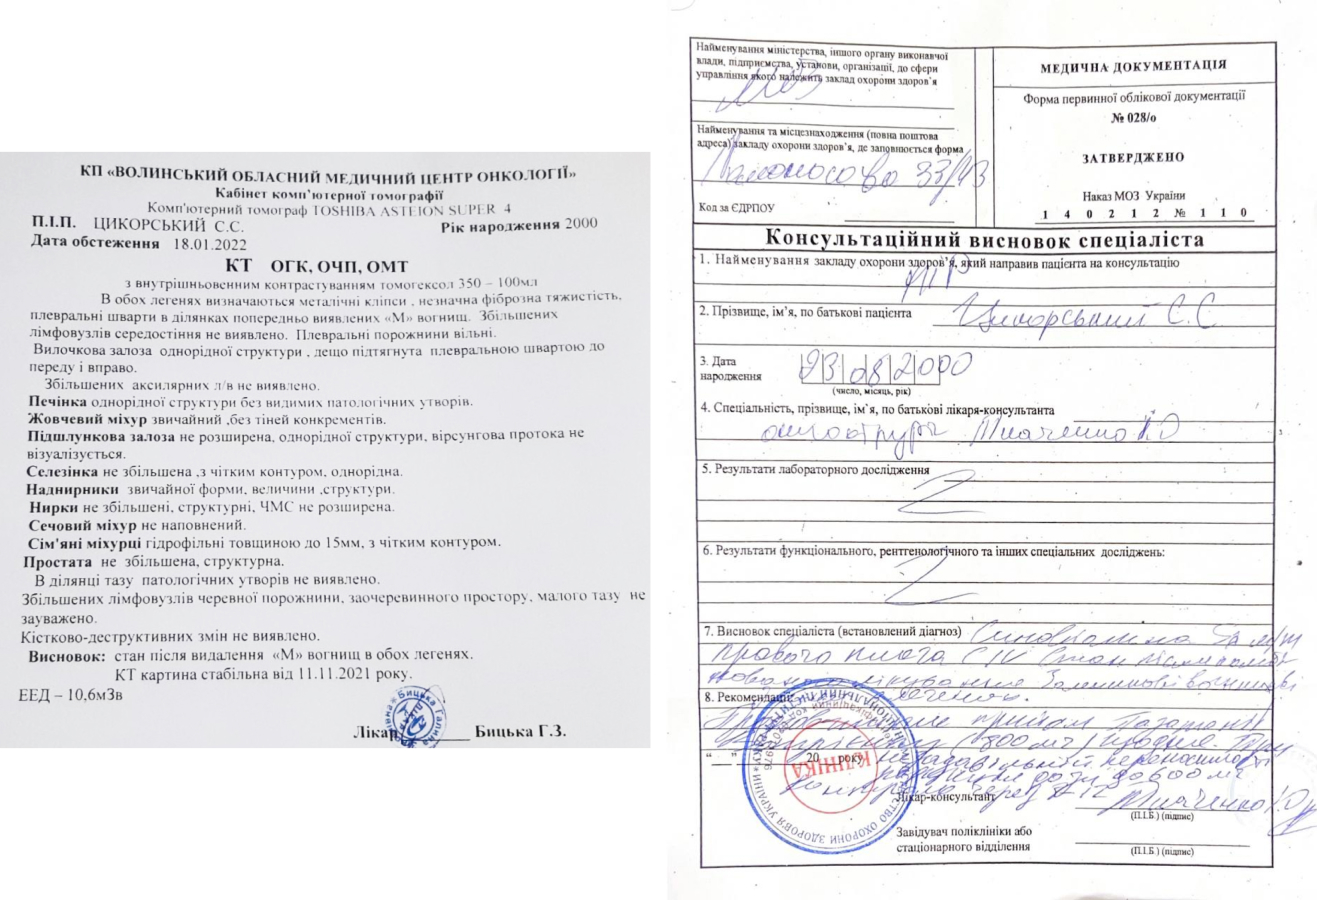 КП «ВОЛИНСЬКИЙ ОБЛАСНИЙ МЕДИЧНИЙ ЦЕНТР ОНКОЛОГІЇ»
Кабінет комп'ютерної томографії
Комп'ютерний томограф TOSHIBA ASTEION SUPER 4
П.І.П. ЦИКОРСЬКИЙ С.С. Рік народження 2000
Дата обстеження 18.01.2022
КТ ОГК, ОЧП, ОМТ
з внутрішньовенним контрастуванням томогексол 350 – 100мл
В обох легенях визначаються металічні кліпси , незначна фіброзна тяжистість,
плевральні шварти в ділянках попередньо виявлених «М» вогнищ. Збільшених
лімфовузлів середостіння не виявлено. Плевральні порожнини вільні.
Вилочкова залоза однорідної структури , дещо підтягнута плевральною швартою до
переду і вправо.
Збільшених аксилярних л/в не виявлено.
Печінка однорідної структури без видимих патологічних утворів.
Жовчевий міхур звичайний ,без тіней конкрементів.
Підшлункова залоза не розширена, однорідної структури, вірсунгова протока не
візуалізується.
Селезінка не збільшена ,з чітким контуром, однорідна.
Наднирники звичайної форми, величини ,структури.
Нирки не збільшені, структурні, ЧМС не розширена.
Сечовий міхур не наповнений.
Сім'яні міхурці гідрофільні товщиною до 15мм, з чітким контуром.
Простата не збільшена, структурна.
В ділянці тазу патологічних утворів не виявлено.
Збільшених лімфовузлів черевної порожнини, заочеревинного простору, малого тазу не
зауважено.
Кістково-деструктивних змін не виявлено.
Висновок: стан після видалення «М» вогнищ в обох легенях.
КТ картина стабільна від 11.11.2021 року.
ЕЕД – 10,6мЗв
Лікар Бицька Г.З.
Найменування міністерства, іншого органу виконавчої
влади, підприємства, установи, організації, до сфери
управління якого належить заклад охорони здоров'я
МОЗ
Найменування та місцезнаходження (повна поштова
адреса) закладу охорони здоров'я, де заповнюється форма
Ломоносова 33/43
Код за ЄДРПОУ
МЕДИЧНА ДОКУМЕНТАЦІЯ
Форма первинної облікової документації
№ 028/о
ЗАТВЕРДЖЕНО
Наказ МОЗ України
1 4 0 2 1 2 № 1 1 0
Консультаційний висновок спеціаліста
1. Найменування закладу охорони здоров'я, який направив пацієнта на консультацію
2. Прізвище, ім'я, по батькові пацієнта Цикорський С.С
3. Дата
народження 23 08 2000
(число, місяць, рік)
4. Спеціальність, прізвище, ім'я, по батькові лікаря-консультанта
5. Результати лабораторного дослідження
6. Результати функціонального, рентгенологічного та інших спеціальних досліджень:
7. Висновок спеціаліста (встановлений діагноз)
правого
8. Рекомендації
прийом
(800 мг)
до 600 мг
“ ” 20 року
КЛІНІКА
Лікар-консультант Ткаченко
(П.І.Б.) (підпис)
Завідувач поліклініки або
стаціонарного відділення
(П.І.Б.) (підпис)